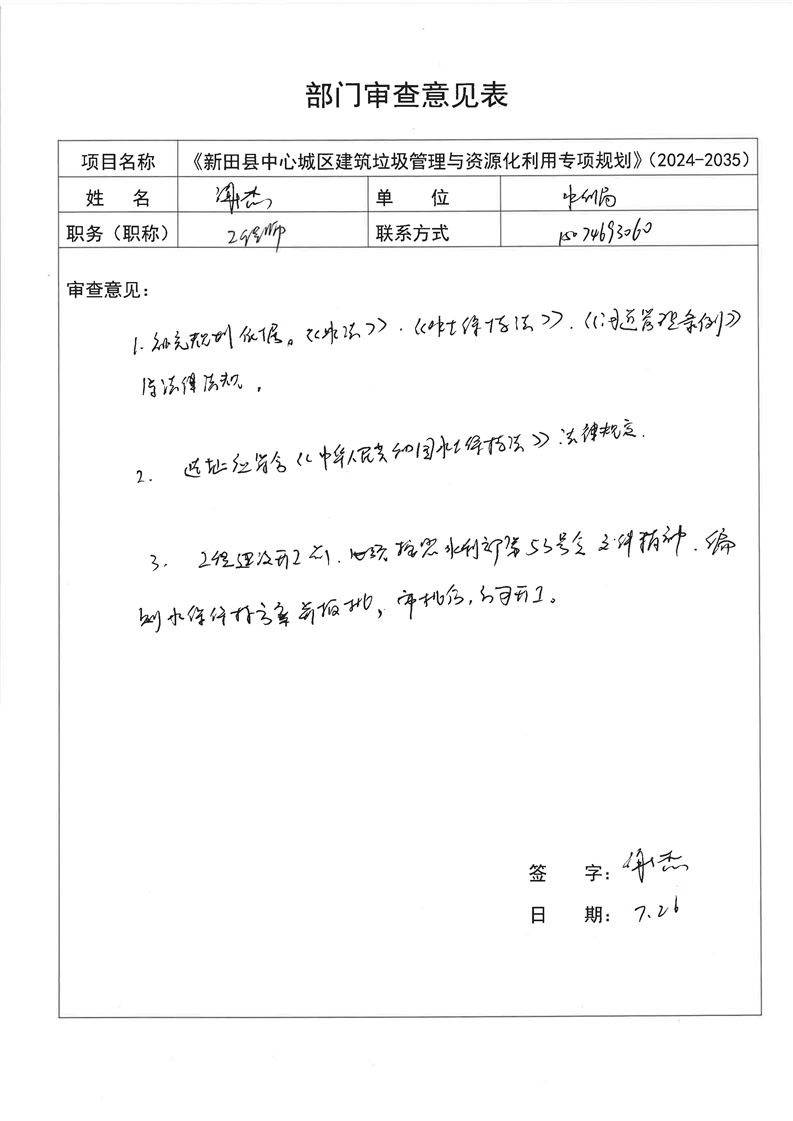 部门审查意见表
项目名称 《新田县中心城区建筑垃圾管理与资源化利用专项规划》（2024-2035）
姓 名 杰 单 位 水利局
职务（职称） 工程师 联系方式 15074693060
审查意见：
1.补充规划依据。《水法》.《水土保持法》.《河道管理条例》
等法律法规.
2. 选址应符合《中华人民共和国水土保持法》法律规定.
3. 工程建设开工前.必须按照水利部第53号令文件精神.编
制水保保持方案并报批，审批后，方可开工。
签 字：杰
日 期：7.26